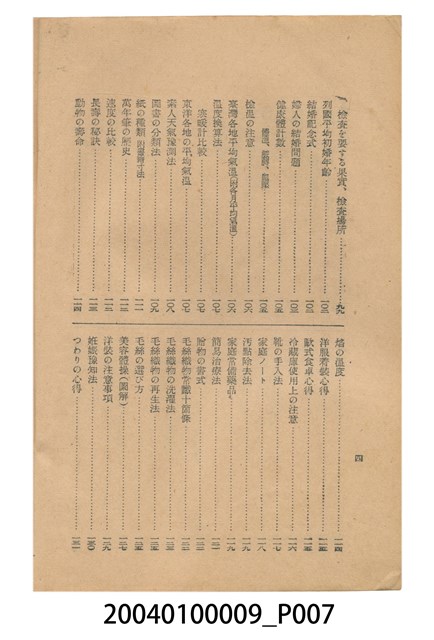 檢査を要する果實、檢査場所……九九
列國平均初婚年齡……一〇三
結婚記念式……一〇三
婦人の結婚問題……一〇三
健康體計數……一〇五
檢溫の注意……一〇五
臺灣各地平均氣溫(附各月平均氣溫)……一〇六
溫度換算法……一〇七
寒暖計比較……一〇七
東洋各地の平均氣溫……一〇七
素人天氣豫測法……一〇八
圖書の分類法……一〇九
紙の種類……一一〇
萬年筆の歷史……一一一
速度の比較……一一二
長壽の秘訣……一一三
動物の壽命……一一四
焰の溫度……一一四
洋服着裝心得……一一五
歐式食卓心得……一一五
冷藏庫使用上の注意……一一六
靴の手入法……一一七
家庭ノート……一一八
汚點除去法……一一九
家庭常備藥品……一一九
簡易治療法……一二一
贈物の書式……一二三
毛絲編物常識十箇條……一二四
毛絲織物の洗濯法……一二五
毛絲織物の再生法……一二五
毛絲の選び方……一二五
美容體操(圖解)……一二七
洋裝の注意事項……一二九
姙娠豫知法……一三〇
つわりの心得……一三一
四
20040100009_P007